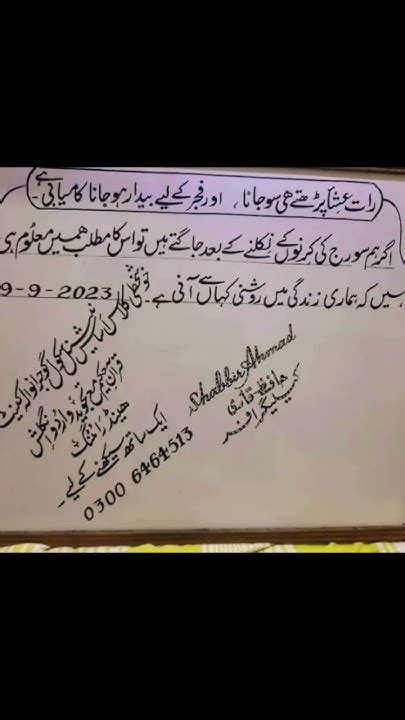 رات عشأ پڑھتے ھی سوجانا، اور فجر کے لیے بیدار ہوجانا کامیابی ہے
اگر ہم سورج کی کرنوں کے نکلنے کے بعد جاگتے ہیں تو اس کا مطلب ھمیں معلوم ہی
نہیں کہ ہماری زندگی میں روشنی کہاں سے آنی ہے۔ 9-9-2023
گوجرانوالہ کینٹ
قرآن حکیم مع تجوید و اردو انگلش
ھینڈ رائٹنگ
ایک ساتھ سیکھنے کے لیے۔
0300 6464513
Shabbir Ahmad
حافظ قاری
کیلیگرافر